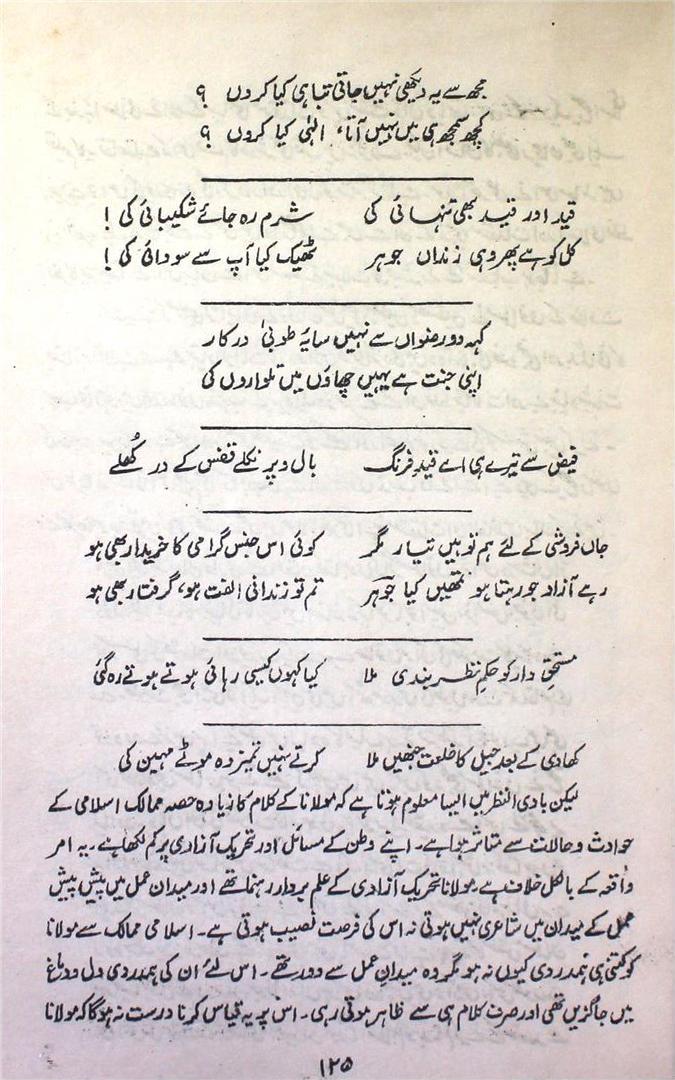 مجھ سے یہ دیکھی نہیں جاتی تباہی کیا کروں ؟
کچھ سمجھ ہی میں نہیں آتا، الٰہی کیا کروں ؟
قید اور قید بھی تنہائی کی شرم رہ جائے شکیبائی کی !
کل کو ہے پھر وہی زنداں جوہر ٹھیک کیا آپ سے سودائی کی !
کہہ دو رضواں سے نہیں سایۂ طوبیٰ درکار
اپنی جنت ہے یہیں چھاؤں میں تلواروں کی
فیض سے تیرے ہی اے قیدِ فرنگ بال و پر نکلے قفس کے در کھلے
جاں فروشی کے لئے ہم تو ہیں تیار مگر کوئی اس جنس گرامی کا خریدار بھی ہو
رہے آزاد جو رہتا ہو تمھیں کیا جوہر تم تو زندانیِ الفت ہو، گرفتار بھی ہو
مستحقِ دار کو حکمِ نظر بندی ملا کیا کہوں کیسی رہائی ہوتے ہوتے رہ گئی
کھادی کے بعد جیل کا خلعت جنھیں ملا کرتے نہیں تمیز وہ موٹے مہین کی
لیکن بادی النظر میں ایسا معلوم ہوتا ہے کہ مولانا کے کلام کا زیادہ حصہ ممالک اسلامی کے
حوادث و حالات سے متاثر ہوا ہے۔ اپنے وطن کے مسائل اور تحریک آزادی پر کم لکھا ہے۔ یہ امر
واقعہ کے بالکل خلاف ہے، مولانا تحریک آزادی کے علم بردار رہنما تھے اور میدان عمل میں پیش پیش
عمل کے میدان میں شاعری نہیں ہوتی نہ اس کی فرصت نصیب ہوتی ہے۔ اسلامی ممالک سے مولانا
کو کتنی ہی ہمدردی کیوں نہ ہو مگر وہ میدانِ عمل سے دور تھے۔ اس لئے ان کی ہمدردی دل و دماغ
میں جاگزیں تھی اور صرف کلام ہی سے ظاہر ہوتی رہی۔ اس پر یہ قیاس کرنا درست نہ ہوگا کہ مولانا
۱۲۵